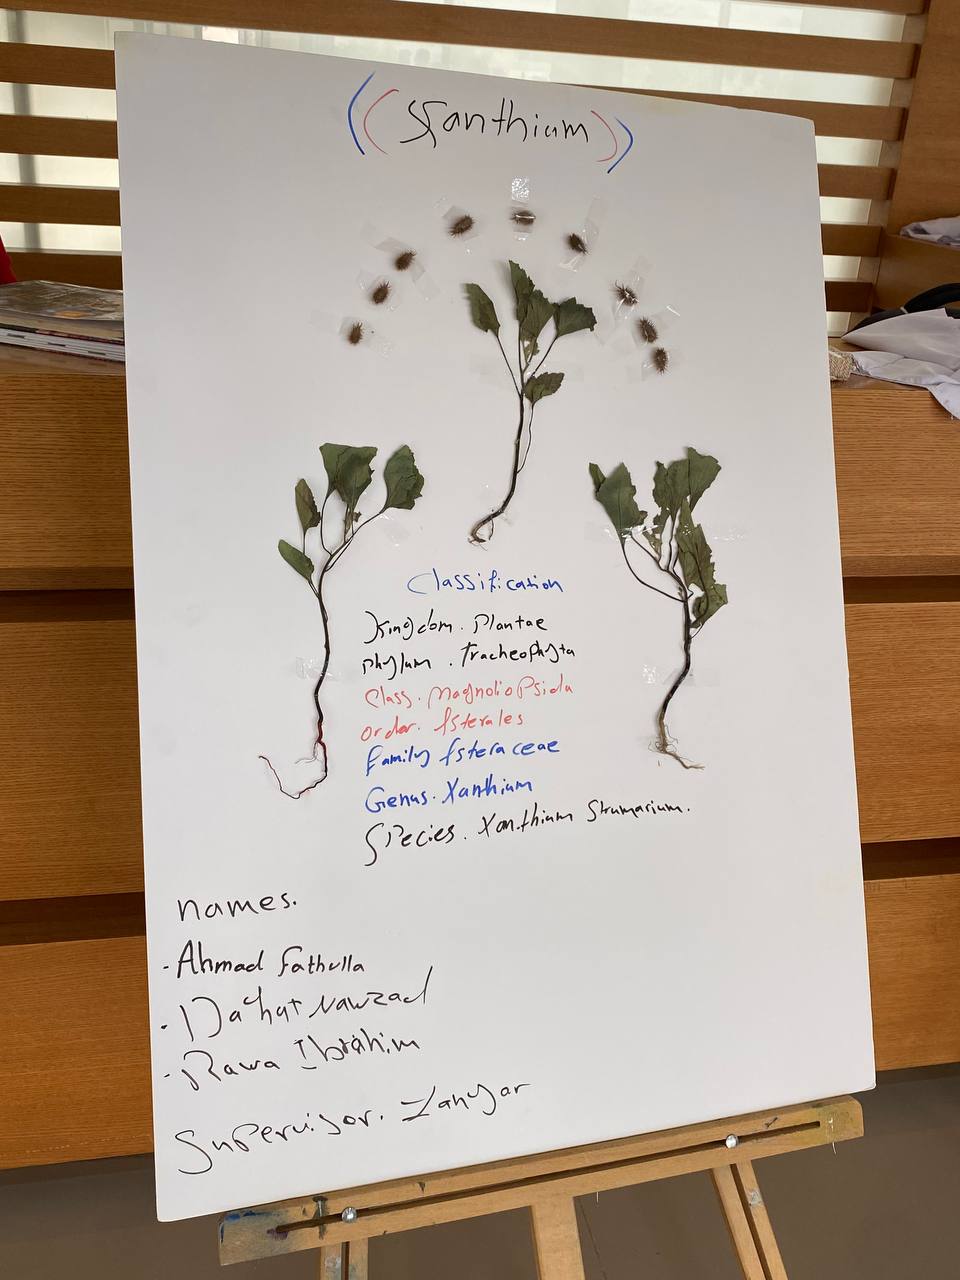 ((Xanthium))
Classification
Kingdom. Plantae
Phylum. Tracheophyta
Class. Magnoliopsida
order. Asterales
Family Asteraceae
Genus. Xanthium
Species. Xanthium Strumarium.
names.
- Ahmad Fathulla
- Nawzad
- Rawa Ibrahim
Supervisor. Zanyar